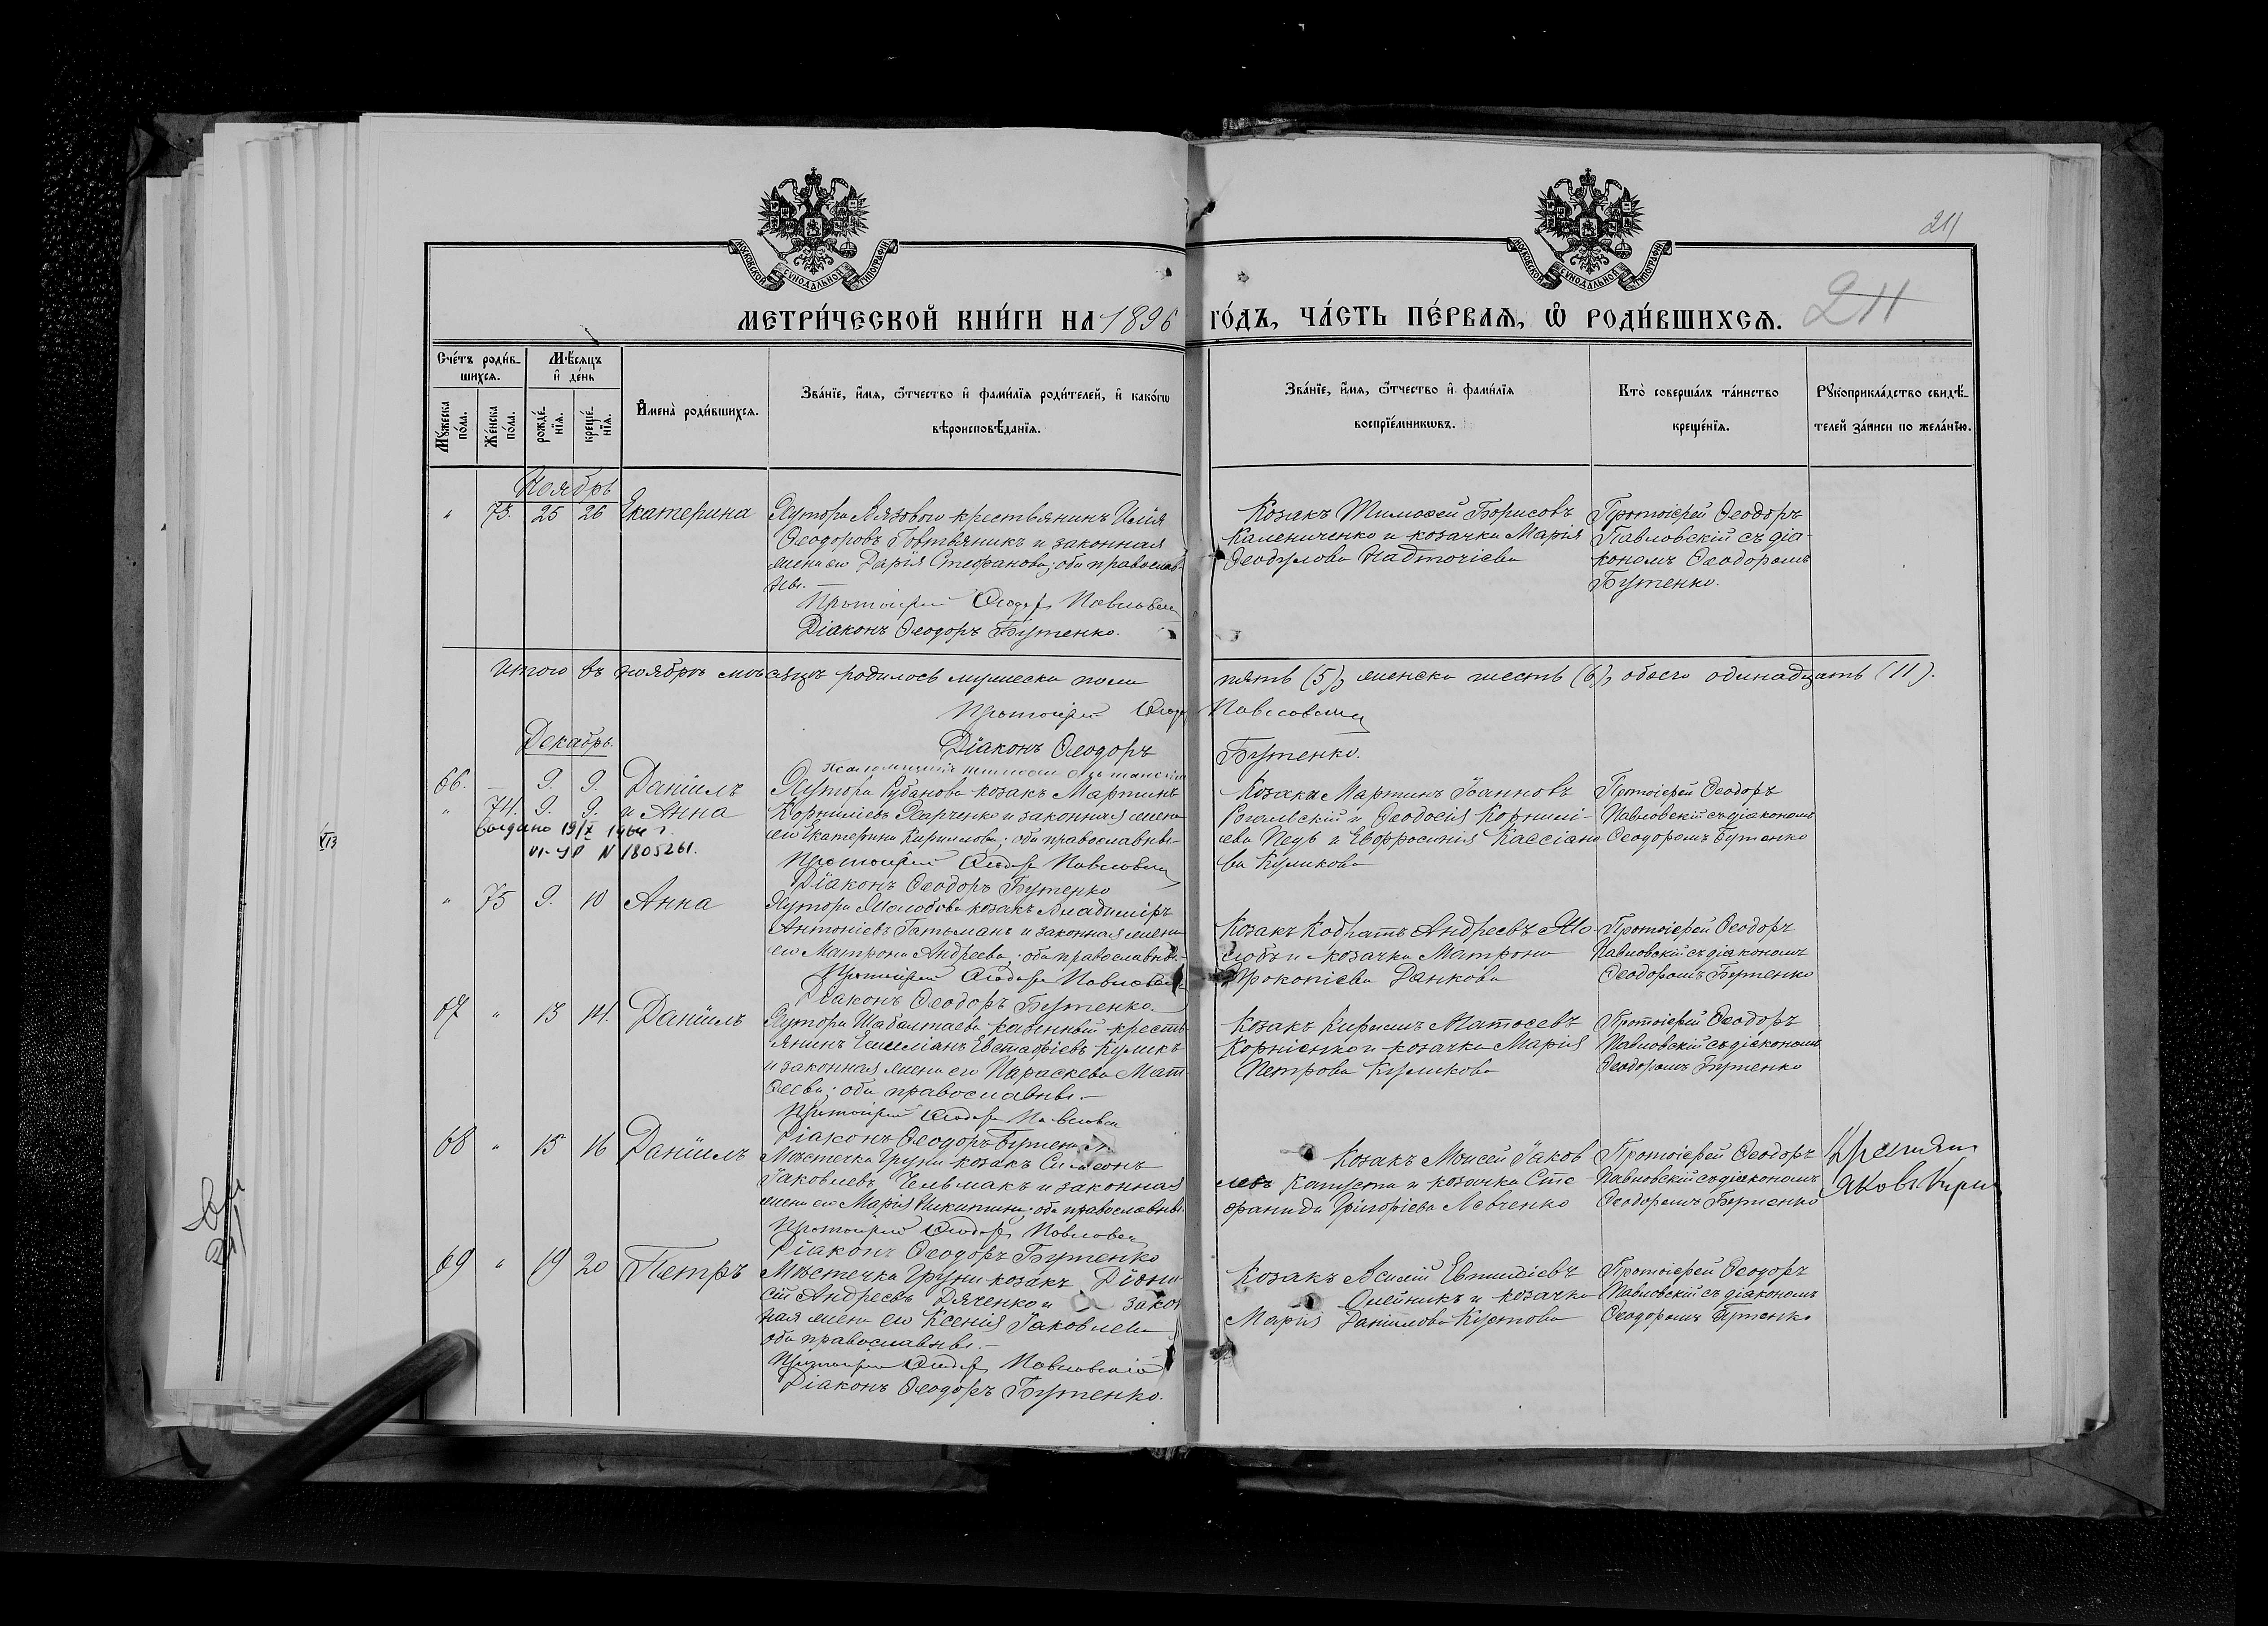 211
МОСКОВСКОЙ СѴНОДАЛЬНОЙ ТИПОГРАФІИ
МОСКОВСКОЙ СѴНОДАЛЬНОЙ ТИПОГРАФІИ
МЕТРИ́ЧЕСКОЙ КНИ́ГИ НА 1896 ГО́ДЪ, ЧА́СТЬ ПЕ́РВАЯ, Ѡ҆ РОДИ́ВШИХСѦ.
211
Сче́тъ роди́в-
шихсѧ.
Мꙋ́жеска по́ла.
Же́нска по́ла.
Мѣ́сѧцъ
и҆ де́нь
рожде́-
нїѧ.
креще́-
нїѧ.
И҆мена̀ роди́вшихсѧ.
Зва́нїе, и҆́мѧ, ѻ҆́тчество и҆ фами́лїѧ роди́телей, и҆ како́гѡ
вѣроисповѣ́данїѧ.
Зва́нїе, и҆́мѧ, ѻ҆́тчество и҆ фами́лїѧ
воспрїе́мникѡвъ.
Кто̀ соверша́лъ та́инство
креще́нїѧ.
Рꙋкоприкла́дство свидѣ́-
телей за́писи по жела́нїю.
Ноябрь
" 73. 25 26 Екатерина
Хутора Лязового крестьянинъ Илія
Ѳеодоровъ Говтвяникъ и законная
жена его Дарія Стефанова; оба православ-
ны.
Протоіерей Ѳеодоръ Павловскій
Діаконъ Ѳеодоръ Бутенко.
Козакъ Тимоѳей Борисовъ
Калениченко и козачка Марія
Ѳеодулова Надточіева
Протоіерей Ѳеодоръ
Павловскій съ діа-
кономъ Ѳеодоромъ
Бутенко.
Итого въ ноябрѣ мѣсяцѣ родилось мужеска пола пять (5), женска шесть (6), обоего одинадцать (11).
Протоіерей Ѳеодоръ Павловскій
Діаконъ Ѳеодоръ Бутенко.
Декабрь.
66. — 9. 9. Даніилъ
" 74. 9. 9. и Анна
Выдано 19/X 1964 г.
VI-УР N 1805261.
Хутора Рубанова козакъ Мартинъ
Корниліевъ Харченко и законная жена
его Екатерина Кириллова; оба православны-
Протоіерей Ѳеодоръ Павловскій
Діаконъ Ѳеодоръ Бутенко
Козаки Мартинъ Іоанновъ
Рогалевскій и Ѳеодосія Корнилі-
ева Педь и Евфросинія Кассіано
ва Куликова
Протоіерей Ѳеодоръ
Павловскій съ діакономъ
Ѳеодоромъ Бутенко
" 75 9. 10 Анна
Хутора Молобова козакъ Владиміръ
Антоніевъ Гатьманъ и законная жена
его Матрона Андреева; оба православны.-
Протоіерей Ѳеодоръ Павловскій
Діаконъ Ѳеодоръ Бутенко.
Козакъ Кодратъ Андреевъ Мо-
лобъ и козачка Матрона
Прокопіева Данкова
Протоіерей Ѳеодоръ
Павловскій съ діакономъ
Ѳеодоромъ Бутенко
67 " 13 14. Даніилъ
Хутора Шабалтаева казенный кресть
янинъ Емиліанъ Евстафіевъ Куликъ
и законная жена его Параскева Мат-
ѳеева; оба православны.-
Протоіерей Ѳеодоръ Павловскій
Діаконъ Ѳеодоръ Бутенко.
Козакъ Кириллъ Матѳеевъ
Корніенко и козачка Марія
Петрова Куликова
Протоіерей Ѳеодоръ
Павловскій съ діакономъ
Ѳеодоромъ Бутенко
68 " 15 16 Даніилъ
Мѣстечка Груни козакъ Симеонъ
Іаковлевъ Чельмакъ и законная
жена его Марія Никитина; оба православны
Протоіерей Ѳеодоръ Павловскій
Діаконъ Ѳеодоръ Бутенко
Козакъ Моисей Іаков
левъ и козачка Сте-
фанида Григоріева Левченко
Протоіерей Ѳеодоръ
Павловскій съ діакономъ
Ѳеодоромъ Бутенко
69 " 19 20 Петръ
Мѣстечка Груни козакъ Діони-
сій Андреевъ Дяченко и закон
ная жена его Ксенія Іаковлева
оба православны.-
Протоіерей Ѳеодоръ Павловскій
Діаконъ Ѳеодоръ Бутенко.
Козакъ Евтихіевъ
Олейникъ и козачка
Марія Даніилова
Протоіерей Ѳеодоръ
Павловскій съ діакономъ
Ѳеодоромъ Бутенко